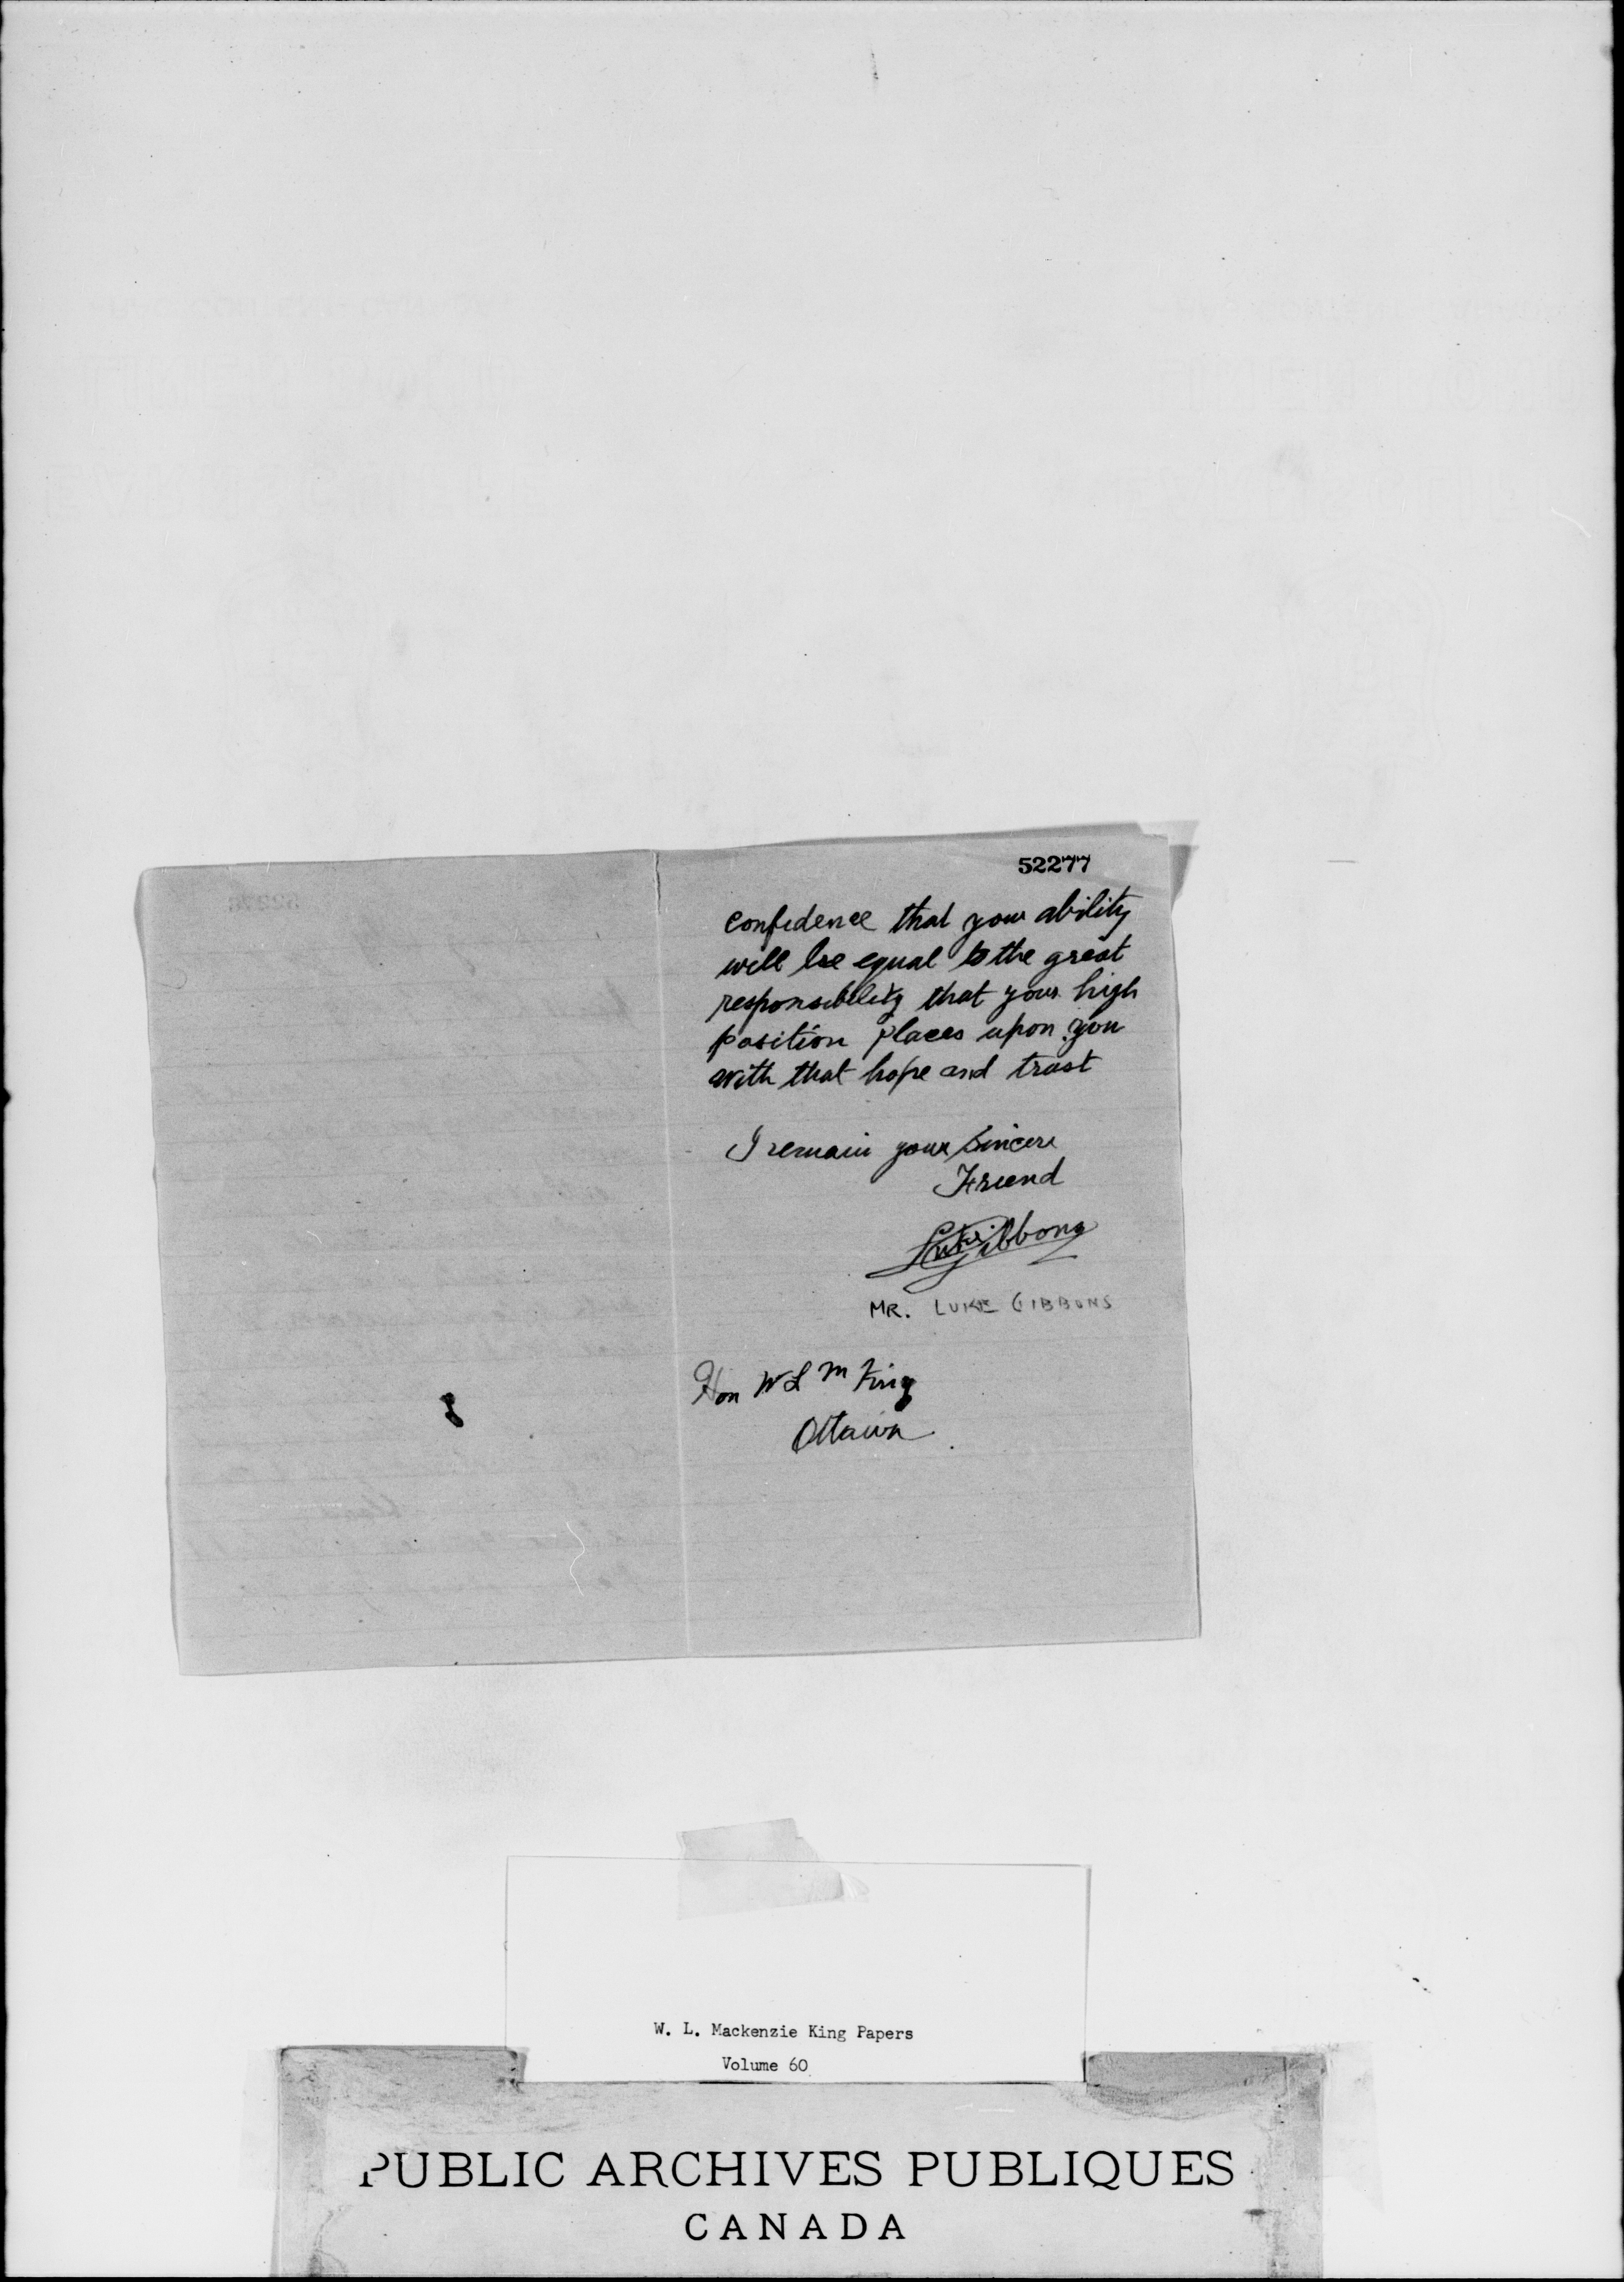 52277
confidence that your ability
will be equal to the great
responsibility that your high
position places upon you
with that hope and trust
I remain your Sincere
Friend
Luke Gibbons
MR. LUKE GIBBONS
Hon W L M King
Ottawa
W. L. Mackenzie King Papers
Volume 60
PUBLIC ARCHIVES PUBLIQUES
CANADA